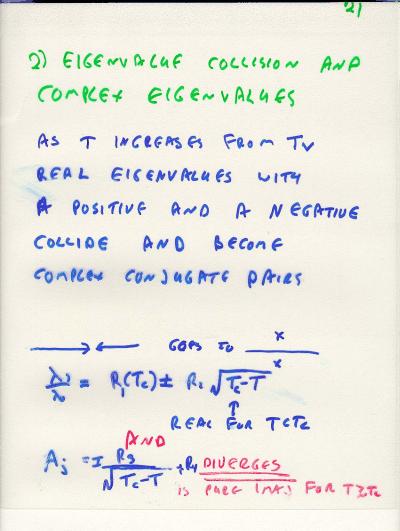 21
2) EIGENVALUE COLLISION AND
COMPLEX EIGENVALUES
AS T INCREASES FROM TV
REAL EIGENVALUES WITH
A POSITIVE AND A NEGATIVE
COLLIDE AND BECOME
COMPLEX CONJUGATE PAIRS
GOES TO x x
= R₁(Tc) ± R₂ √Tc-T
REAL FOR T<Tc
AND
Aj = ± R3/√Tc-T + R4 DIVERGES
IS PURE IMAG FOR T≥Tc